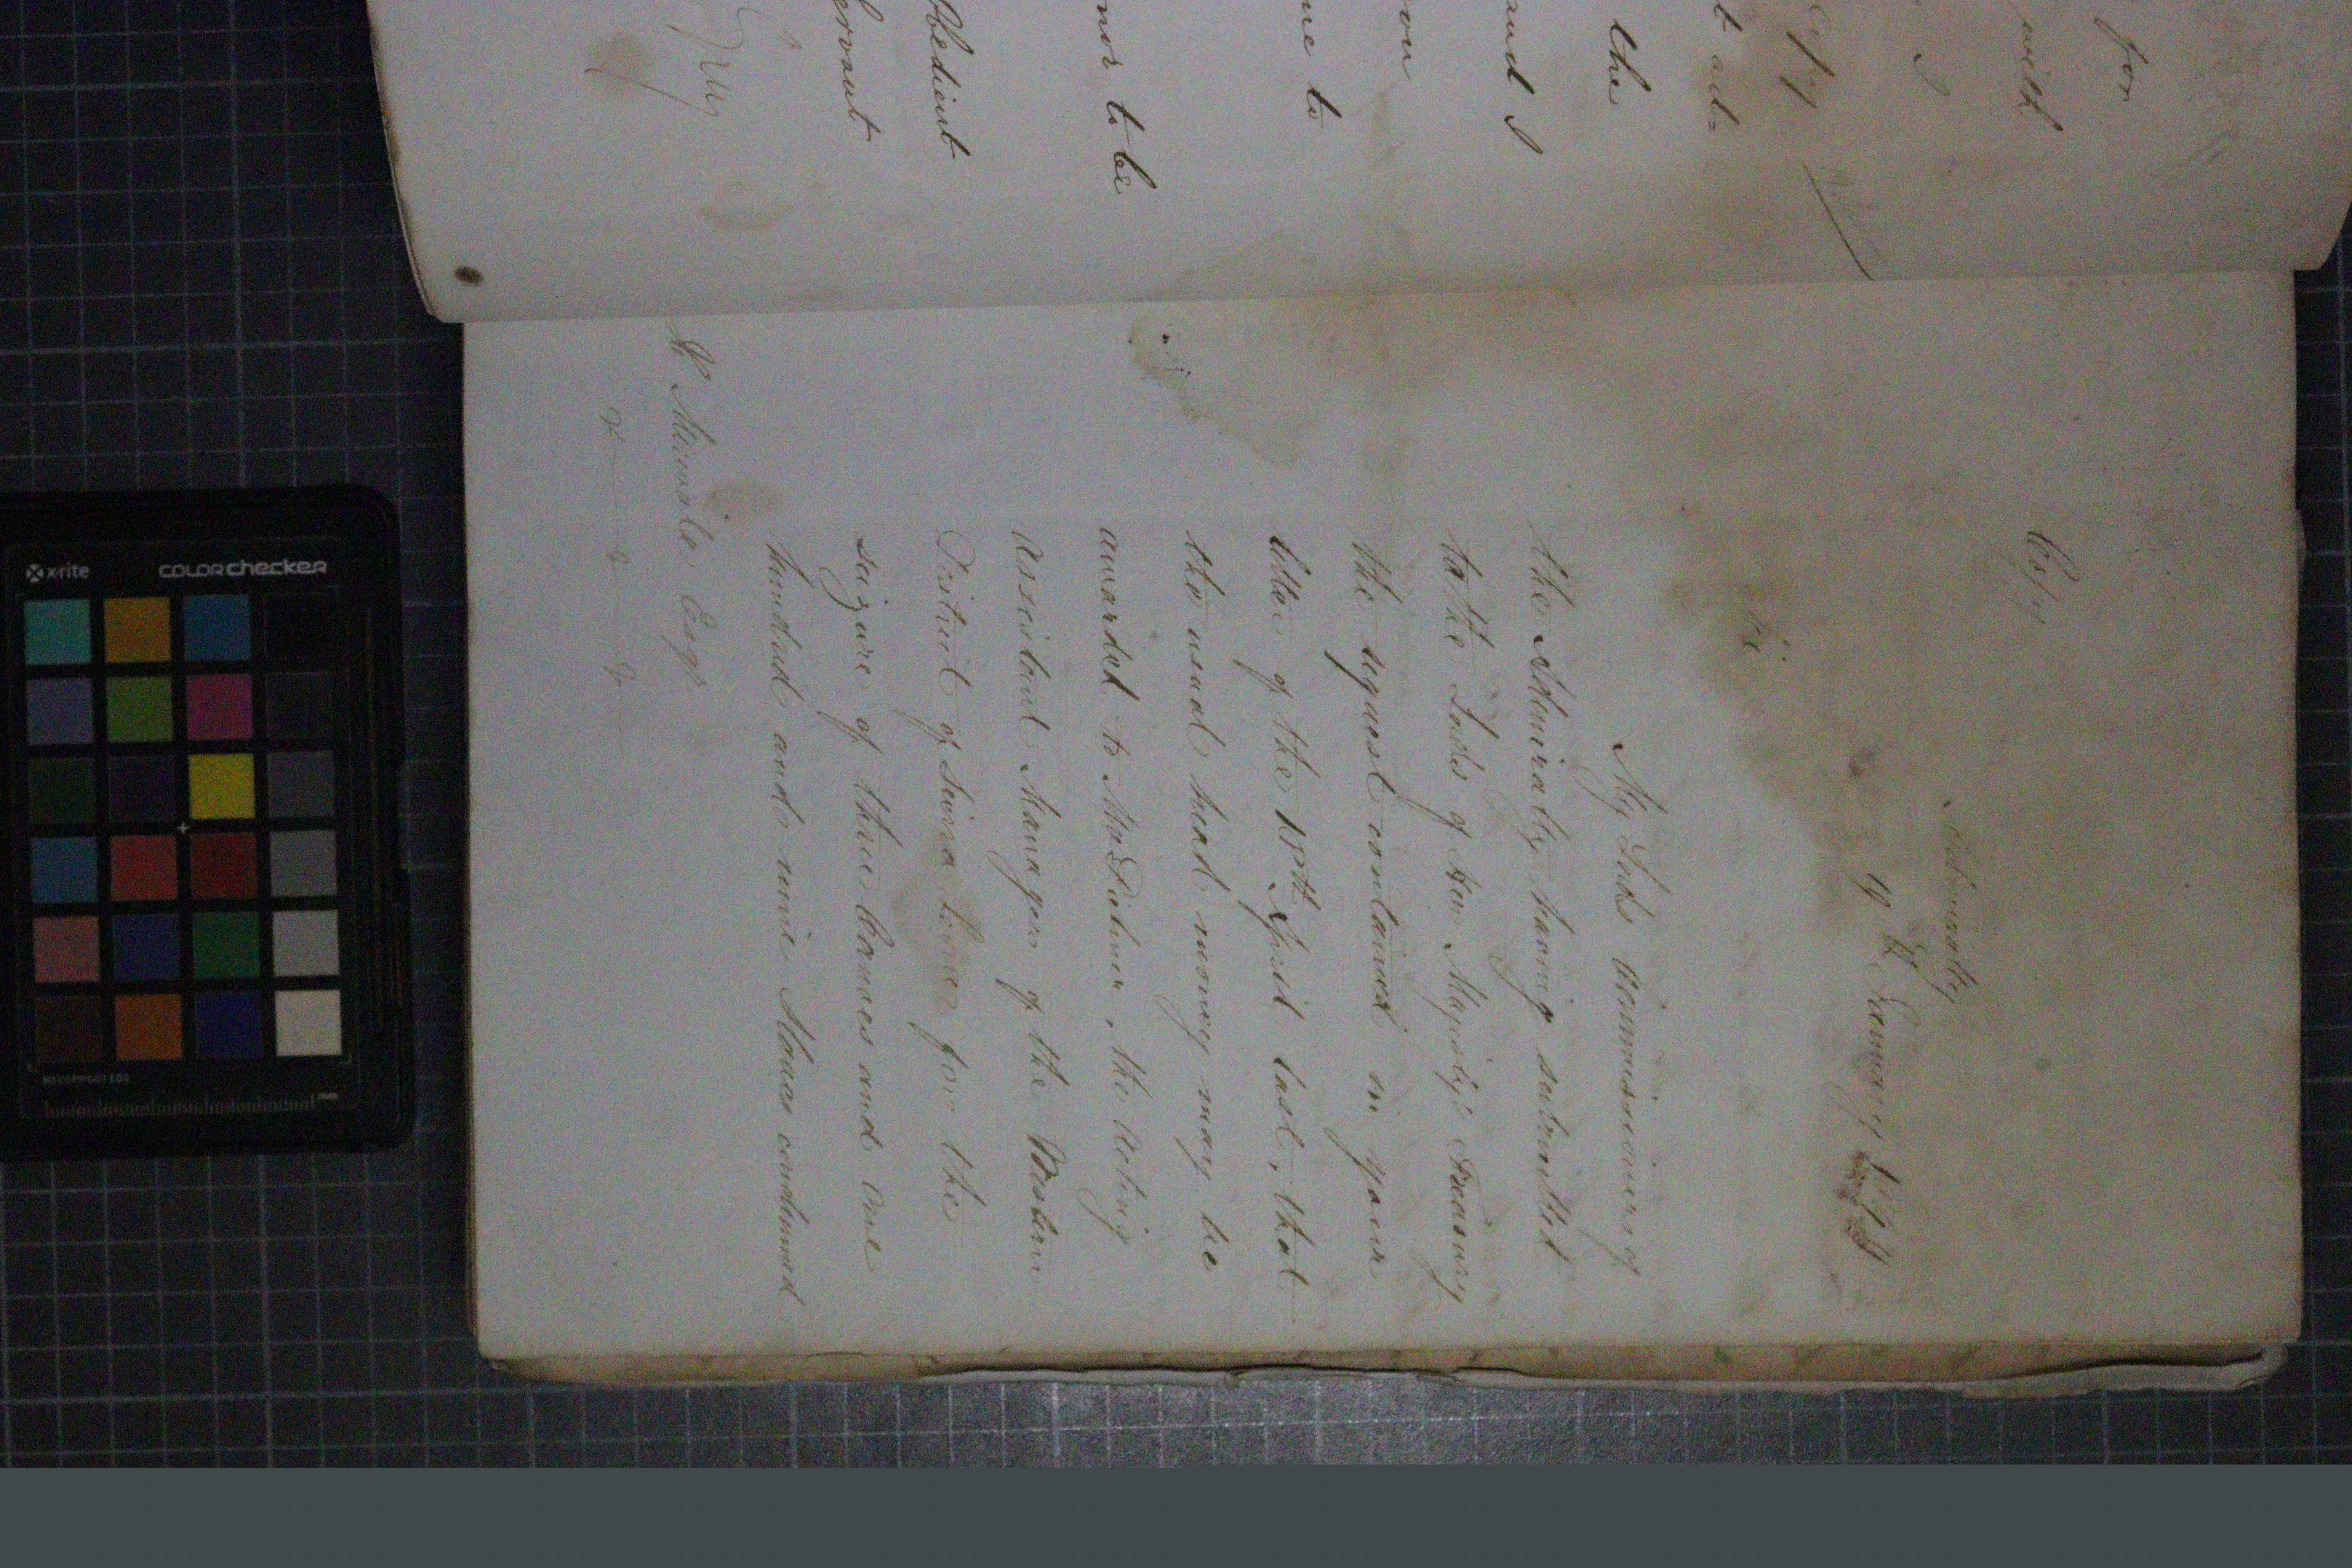 for
with
I
copy
t ad=
the
and I
you
me to
nor to be
Obedient
ervant
Copy
Admiralty
19 January
Sir
My Lords Commissioners of
the Admiralty having submitted
to the Lords of Her Majesty's Treasury
the request contained in your
letter of the 15th April last, that
the usual head money may be
awarded to Mr Palmer, the Acting
Assistant Manager of the Western
District of Sierra Leone for the
seizure of three Canoes and one
hundred and nine Slaves condemned
Esqr
x-rite
COLORchecker